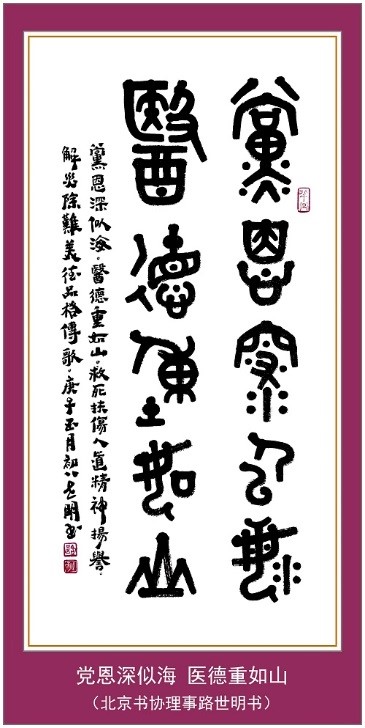 黨恩深似海
醫德重如山
黨恩深似海。醫德重如山。救死扶傷人道精神揚譽。
解災除難美德品格傳歌。庚子五月初八世明書
党恩深似海 医德重如山
（北京书协理事路世明书）